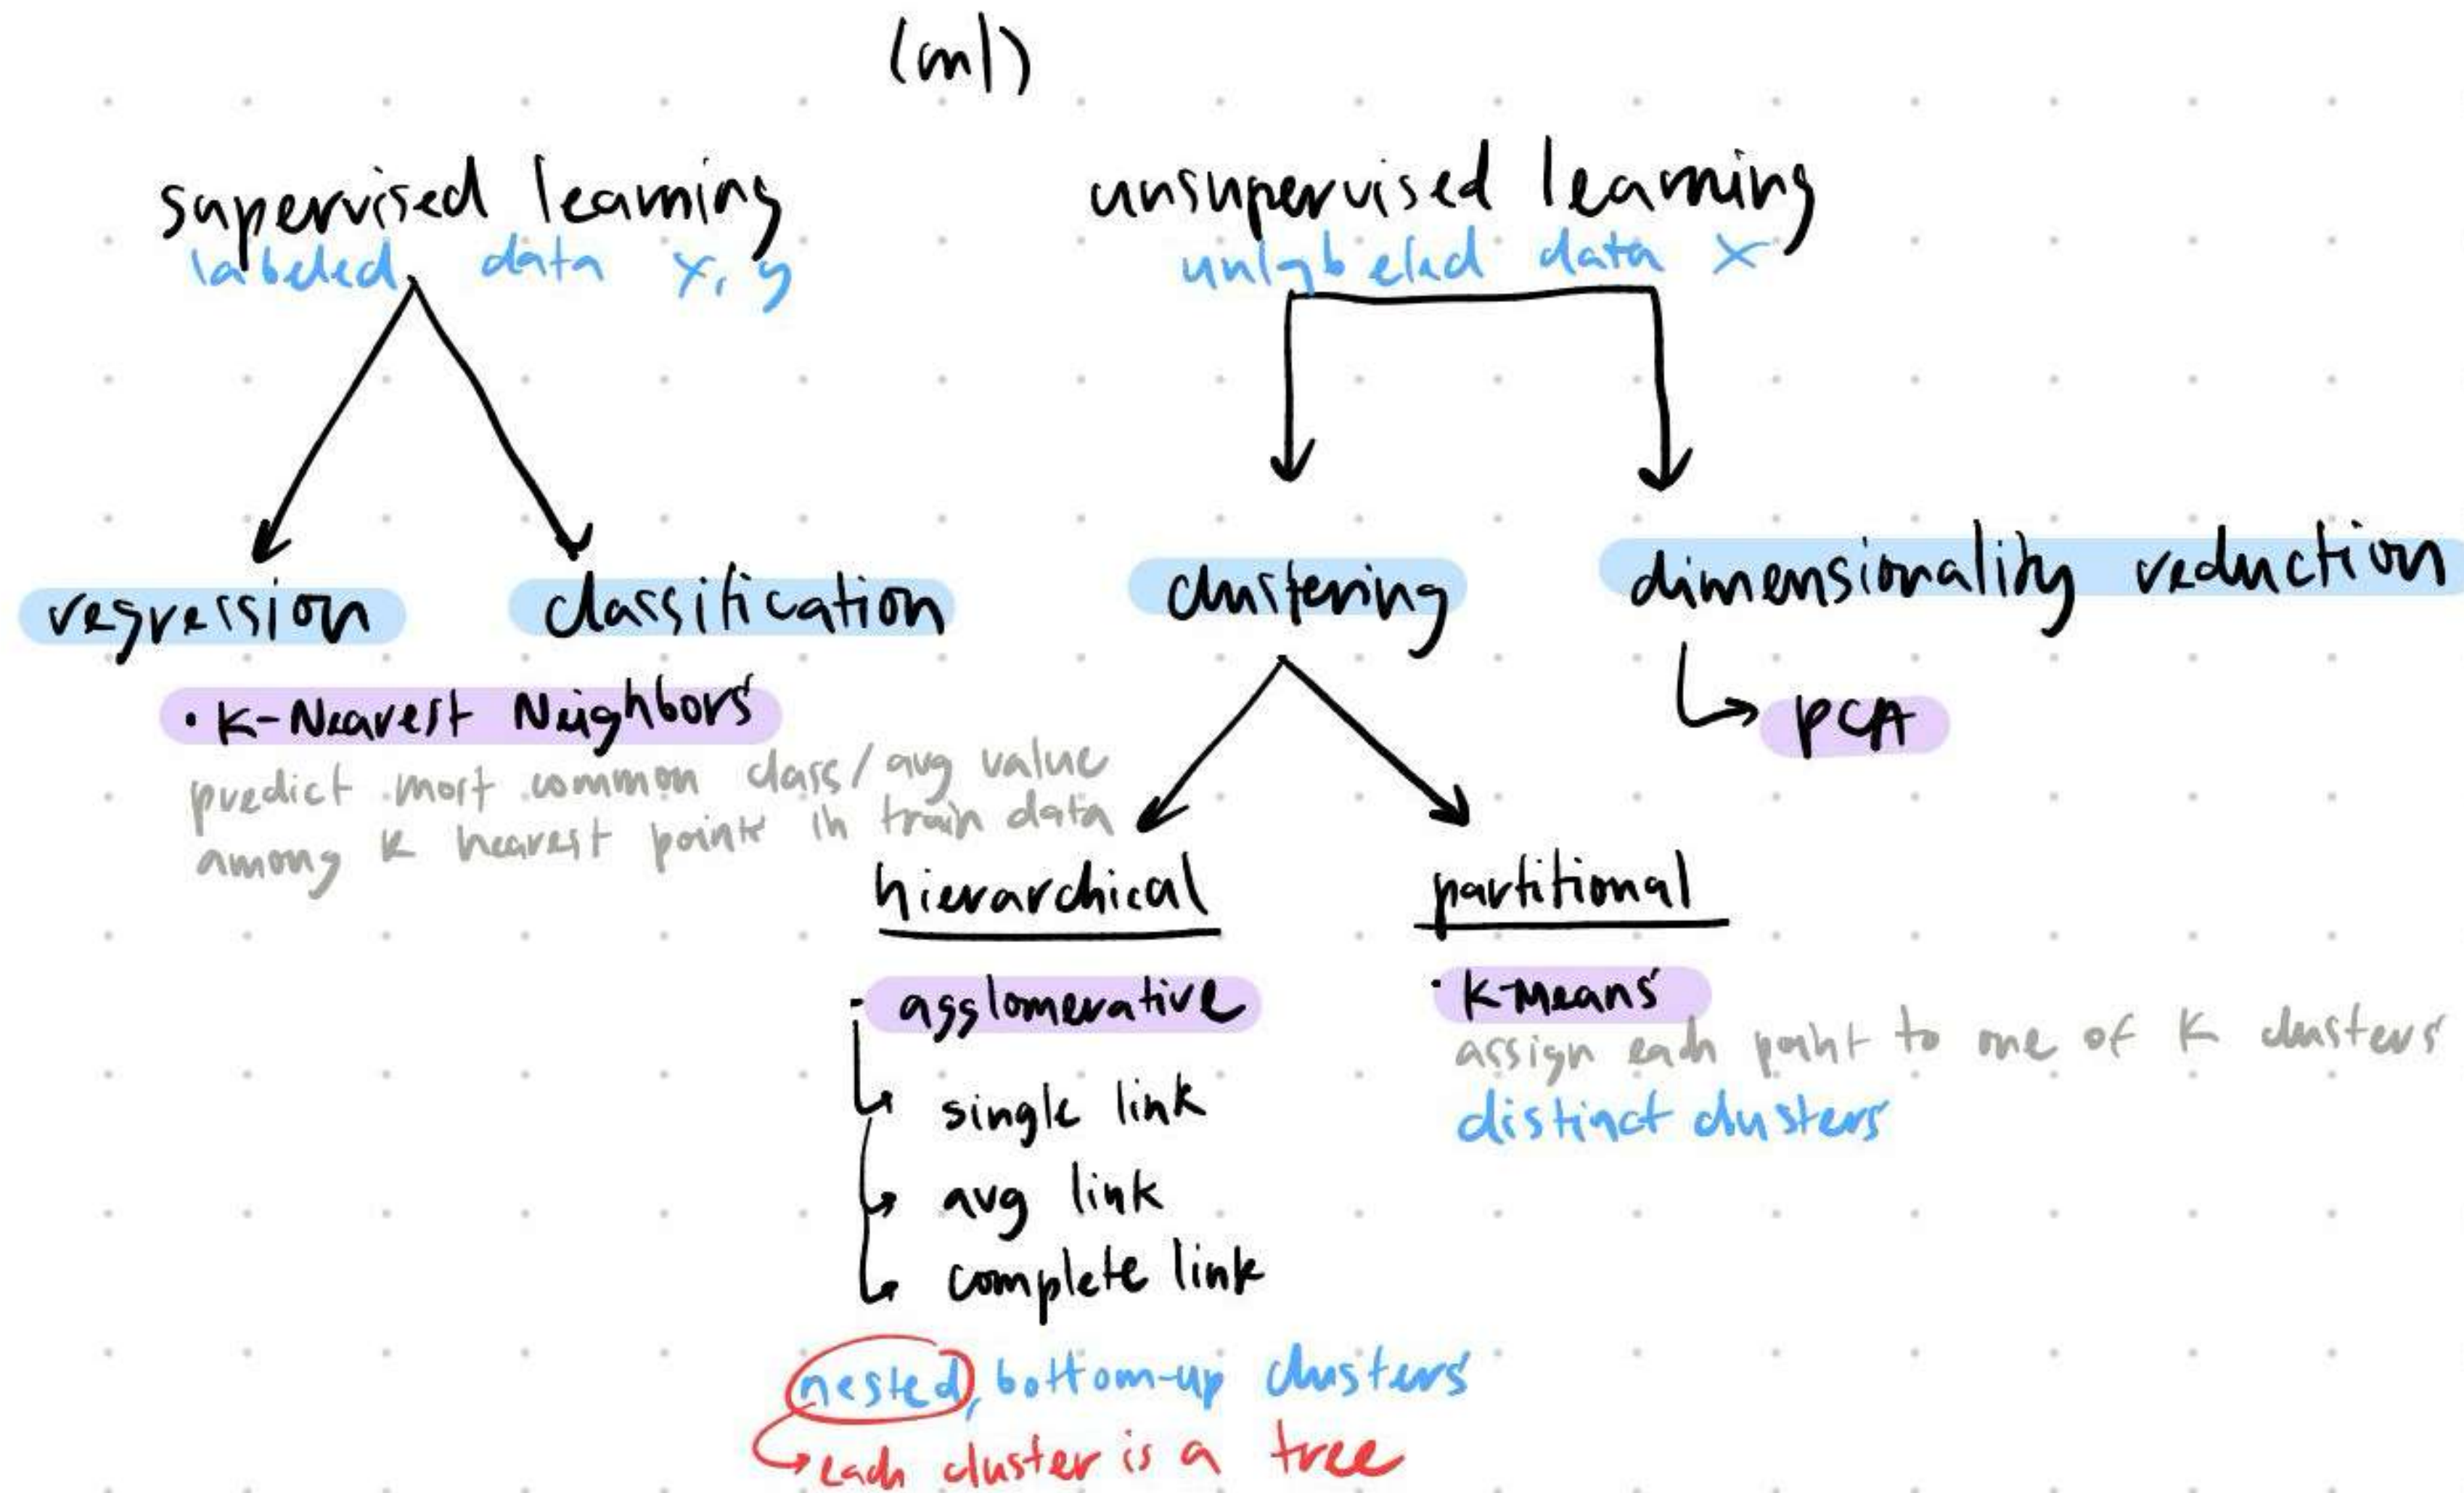 (ml)
supervised learning
labeled data x, y
unsupervised learning
unlabeled data x
regression
classification
clustering
dimensionality reduction
• K-Nearest Neighbors
predict most common class/avg value
among k nearest points in train data
PCA
hierarchical
partitional
• agglomerative
single link
avg link
complete link
nested, bottom-up clusters
each cluster is a tree
• K-Means
assign each point to one of K clusters
distinct clusters